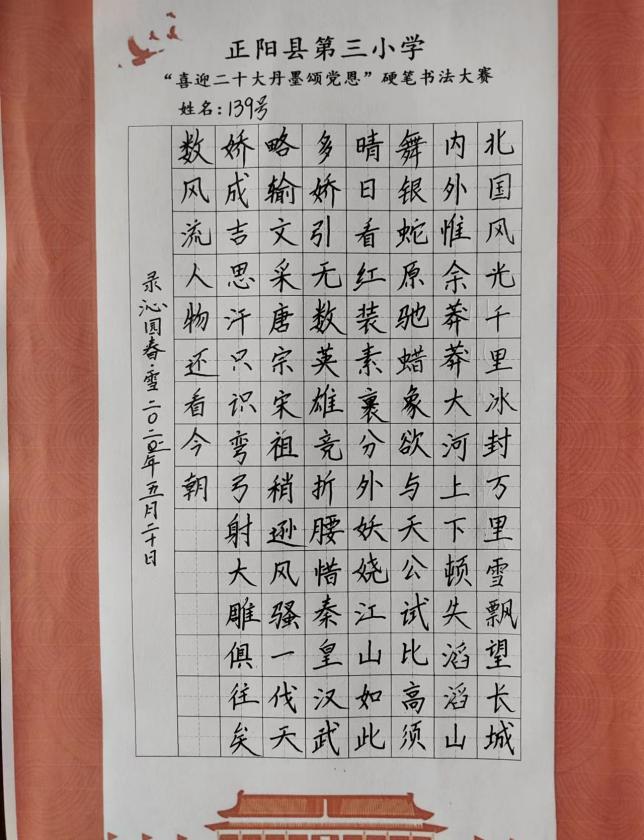 正阳县第三小学
“喜迎二十大丹墨颂党恩”硬笔书法大赛
姓名:139号
北国风光千里冰封万里雪飘望长城
内外惟余莽莽大河上下顿失滔滔山
舞银蛇原驰蜡象欲与天公试比高须
晴日看红装素裹分外妖娆江山如此
多娇引无数英雄竞折腰惜秦皇汉武
略输文采唐宗宋祖稍逊风骚一代天
娇成吉思汗只识弯弓射大雕俱往矣
数风流人物还看今朝
录沁园春·雪二〇二二年五月二十日